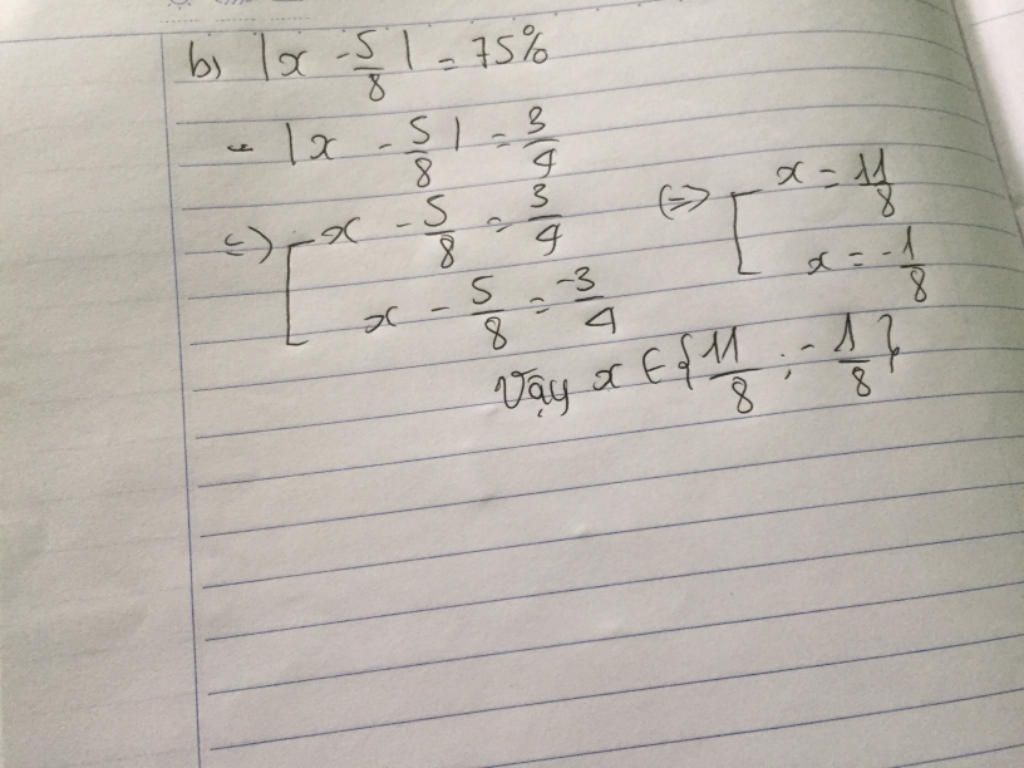 b) |x - 5/8| = 75%
- |x - 5/8| = 3/4
<=> [ x - 5/8 = 3/4
x - 5/8 = -3/4
<=> [ x = 11/8
x = -1/8
Vậy x ∈ {11/8 ; -1/8}